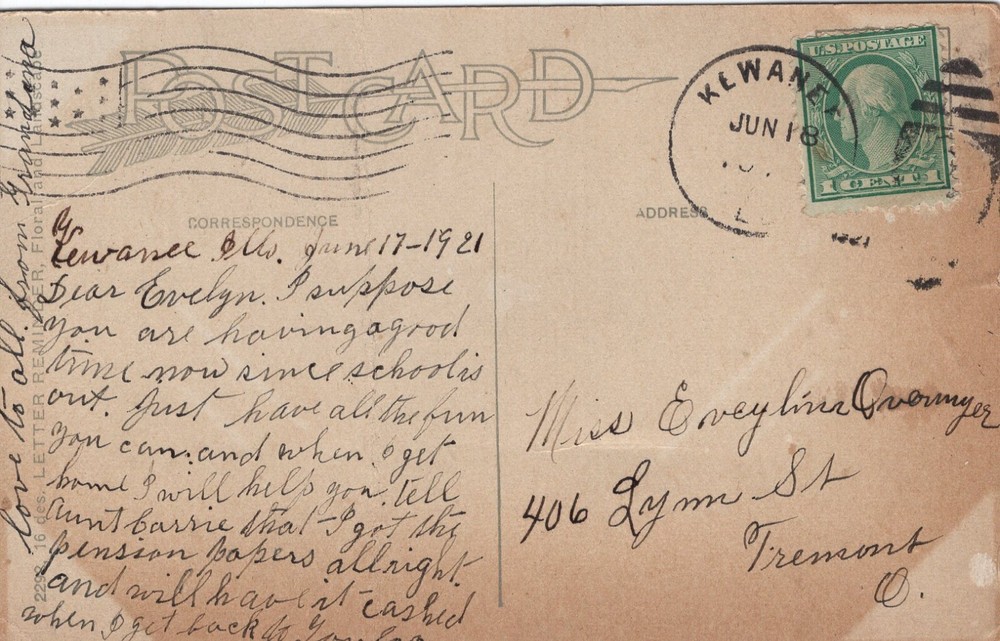 POST CARD
KEWANEE
JUN 18
U.S. POSTAGE
1 CENT 1
1921
CORRESPONDENCE
ADDRESS
Kewanee Ills. June 17-1921
Dear Evelyn. I suppose
you are having a good
time now since school is
out. Just have all the fun
you can. and when I get
home I will help you. tell
Aunt Carrie that I got the
pension papers allright.
and will have it cashed
when I get back to
love to all from Grandma
2292 16 des. LETTER REMINDER, Floral and Landscape
Miss Eveyline Overmyer
406 Lynn St
Fremont
O.